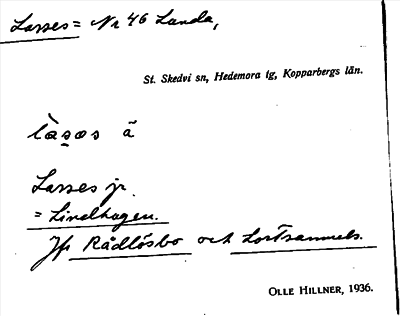 Larses = Nr 46 Landa,
St. Skedvi sn, Hedemora tg, Kopparbergs län.
Larses jr.
= Lindhagen.
Jfr Rådlösbo och Lortsammels.
OLLE HILLNER, 1936.